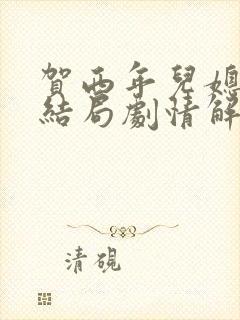 賀西年兒媳
結局劇情解
清硯